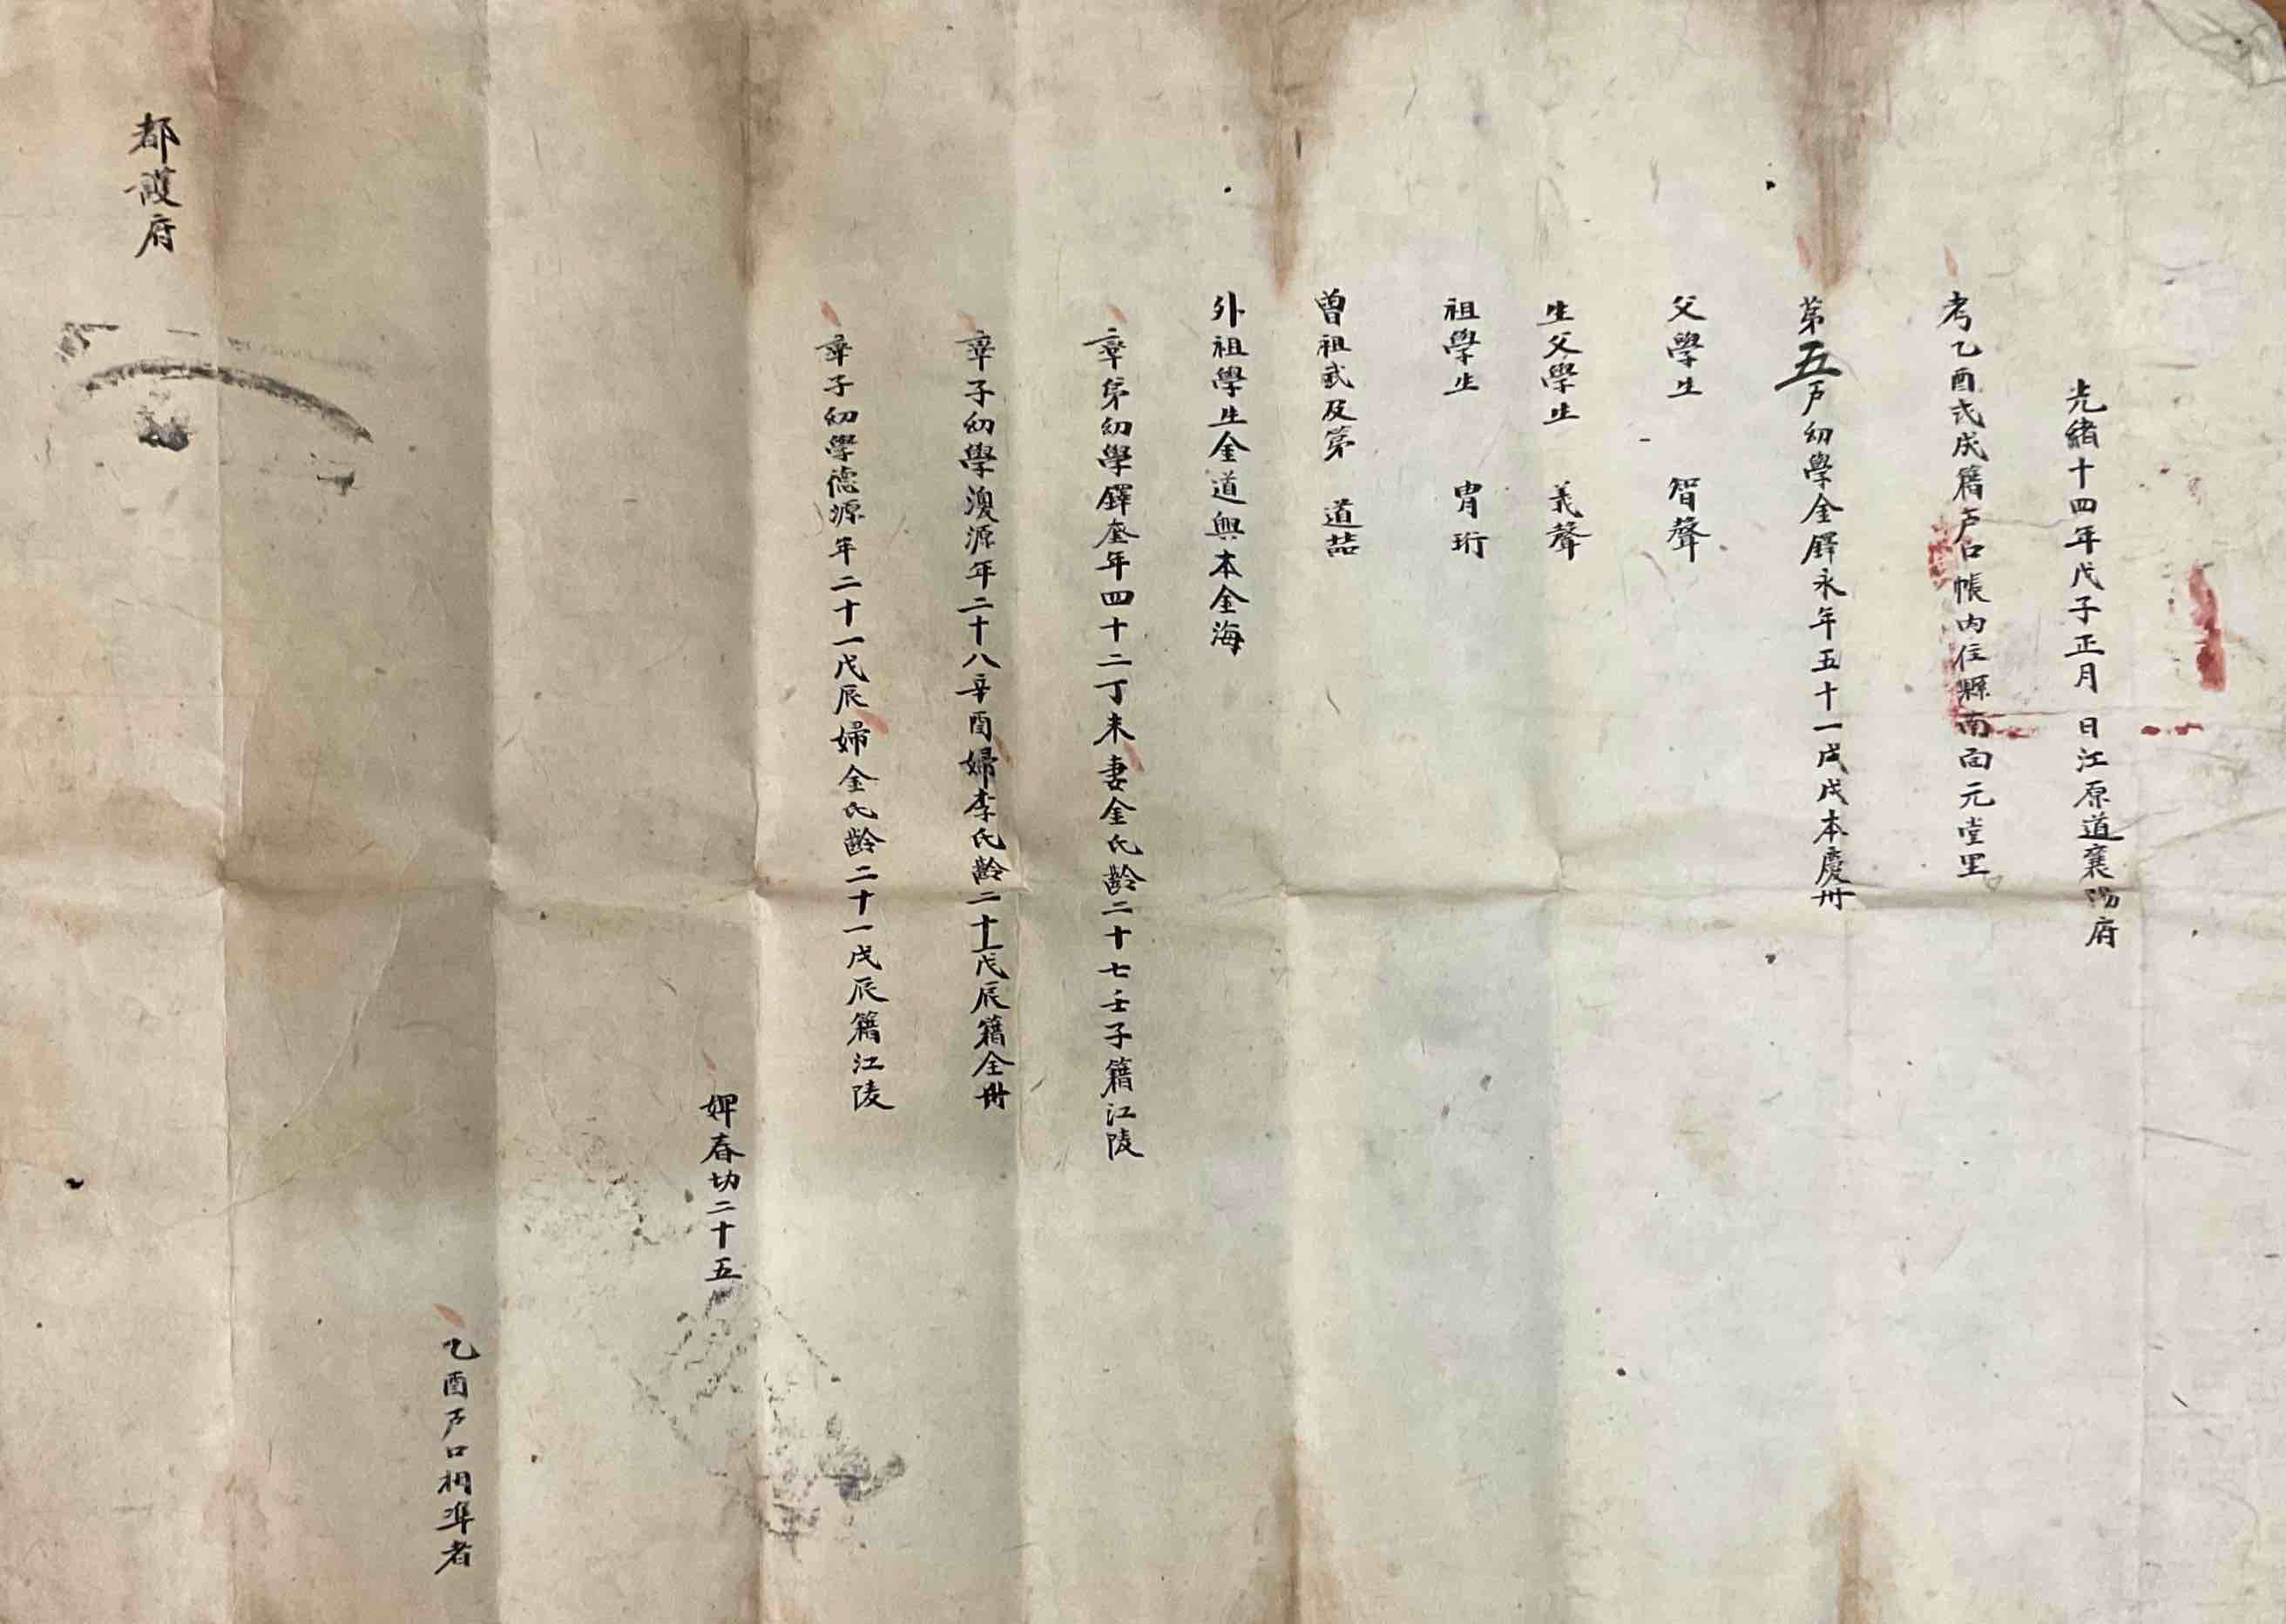 光緒十四年戊子正月 日江原道襄陽府
考乙酉式成籍戶口帳內住縣南面元堂里
第五戶幼學金鐸永年五十一戊戌本慶州
父學生 智聲
生父學生 義聲
祖學生 胄珩
曾祖武及第 道喆
外祖學生金道興本金海
率弟幼學鐸奎年四十二丁未妻金氏齡二十七壬子籍江陵
率子幼學澓源年二十八辛酉婦李氏齡二十一戊辰籍全州
率子幼學德源年二十一戊辰婦金氏齡二十一戊辰籍江陵
婢春切二十五
乙酉戶口相準者
都護府